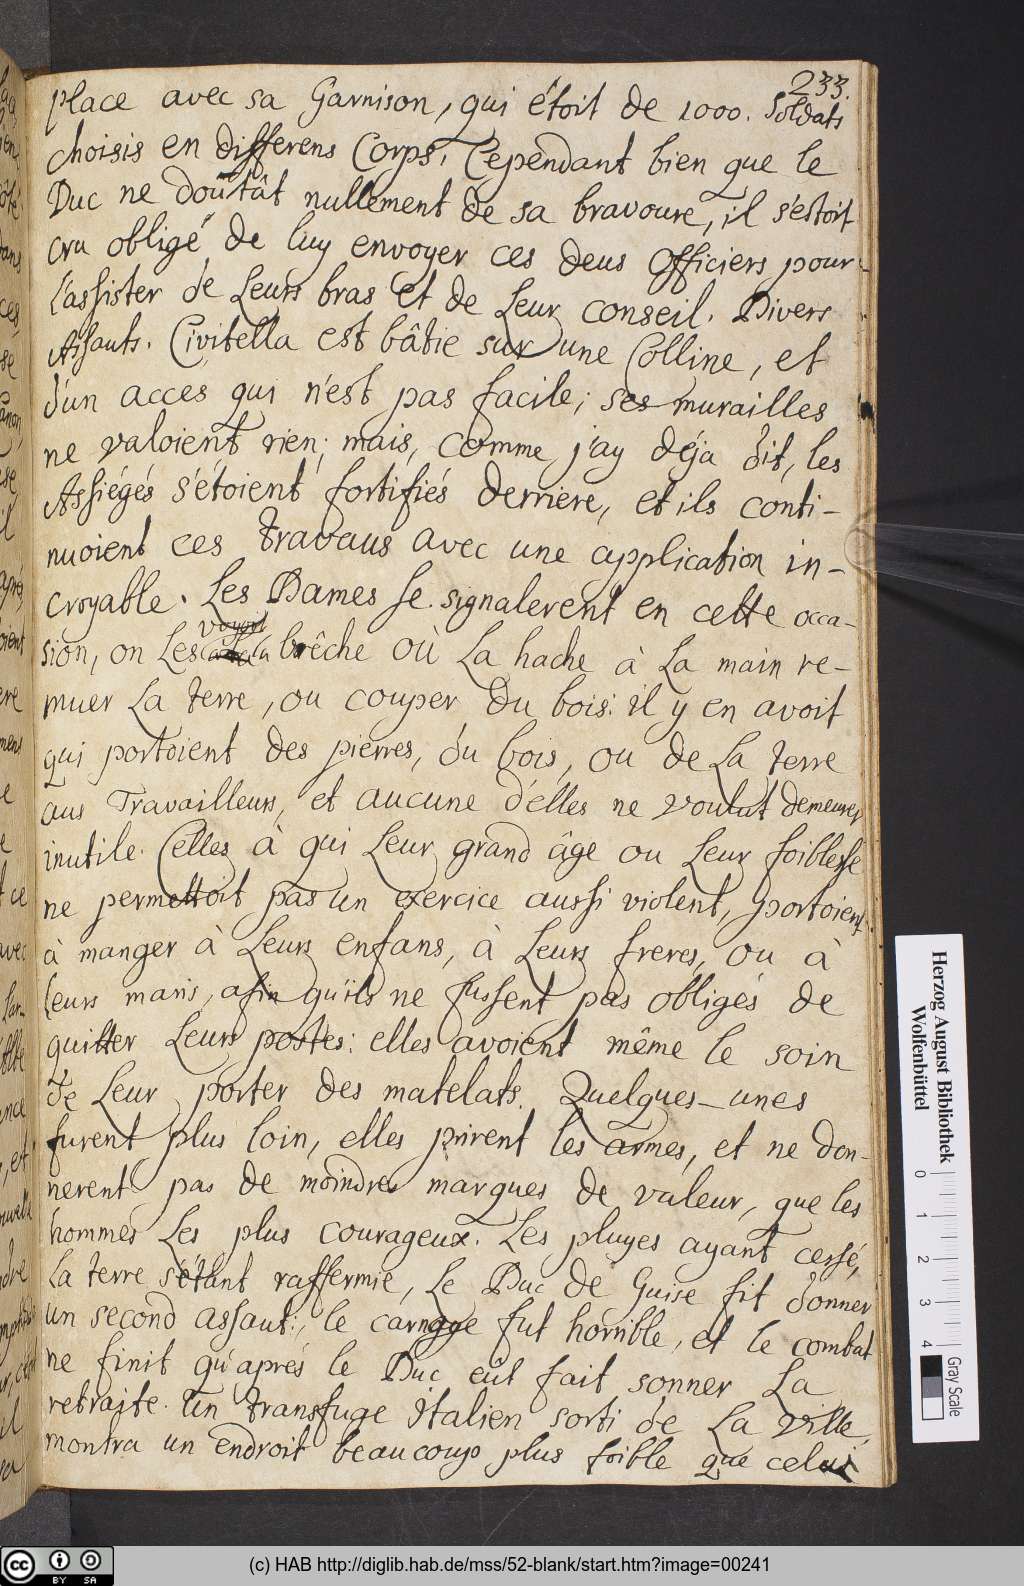 233.
place avec sa Garnison, qui étoit de 1000. Soldats
choisis en differens Corps. Cependant bien que le
Duc ne doûtât nullement de sa bravoure, il s'estoit
cru obligé de luy envoyer ces deus Officiers pour
l'assister de Leurs bras et de Leur conseil. Divers
Assauts. Civitella est bâtie sur une Colline, et
d'un acces qui n'est pas facile; ses murailles
ne valoient rien; mais, comme j'ay déja dit, les
Assiégés s'étoient fortifiés derriere, et ils conti-
nuoient ces travaus avec une application in-
croyable. Les Dames se signalerent en cette occa-
voyoit
sion, on Les la brêche où La hache à La main re-
muer La terre, ou couper du bois: il y en avoit
qui portoient des pierres, du bois, ou de La terre
aus Travailleurs, et aucune d'elles ne voulut demeurer
inutile. Celles à qui Leur grand âge ou Leur foiblesse
ne permettoit pas un exercice aussi violent, portoient
à manger à Leurs enfans, à Leurs freres, ou à
leurs maris, afin qu'ils ne fussent pas obligés de
quitter Leurs postes: elles avoient même le soin
de Leur porter des matelats. Quelques-unes
furent plus loin, elles prirent les armes, et ne don-
nerent pas de moindres marques de valeur, que les
hommes Les plus courageux. Les pluyes ayant cessé,
La terre s'étant raffermie, Le Duc de Guise fit donner
un second assaut:, le carnage fut horrible, et le combat
ne finit qu'aprés le Duc eût fait sonner La
retraite. Un transfuge Italien sorti de La Ville,
montra un endroit beaucoup plus foible que celui
Herzog August Bibliothek
Wolfenbüttel
0 1 2 3 4
Gray Scale
cc BY SA
(c) HAB http://diglib.hab.de/mss/52-blank/start.htm?image=00241